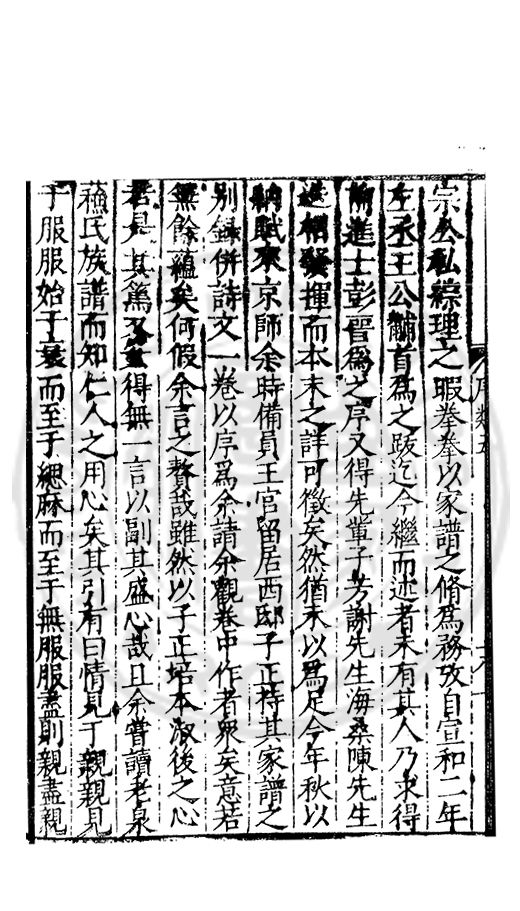 宗公私綜理之暇拳拳以家譜之脩爲務攷自宣和二年
左丞王公黼首爲之䟦迄今繼而述者未有其人乃求得
前進士彭晋爲之序又得先輩子芳謝先生海桑陳先生
迭相發揮而本末之詳可徵矣然猶未以爲足今年秋以
納賦來京師余時備員王官留居西邸子正持其家譜之
别錄併詩文一卷以序爲余請余觀卷中作者衆矣意若
無餘藴矣何假余言之贅哉雖然以子正培本淑後之心
若是其篤又豈得無一言以副其盛心哉且余嘗讀老泉
蘓氏族譜而知仁人之用心矣其引有曰情見于親親見
于服服始于衰而至于緦麻而至于無服服盡則親盡親
序類五